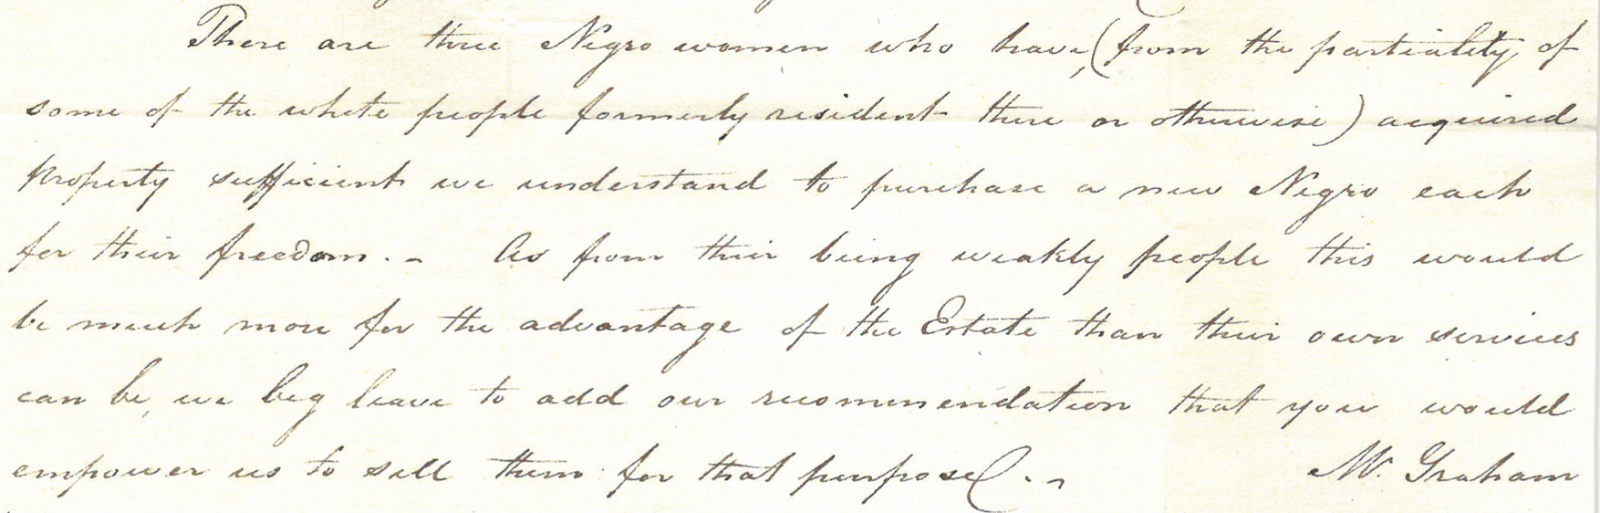 There are three Negro women who have, (from the partiality of
some of the white people formerly resident there or otherwise) acquired
property sufficient we understand to purchase a new Negro each
for their freedom. - As from their being weakly people this would
be much more for the advantage of the Estate than their own services
can be, we beg leave to add our recommendation that you would
empower us to sell them for that purpose. - Mr. Graham